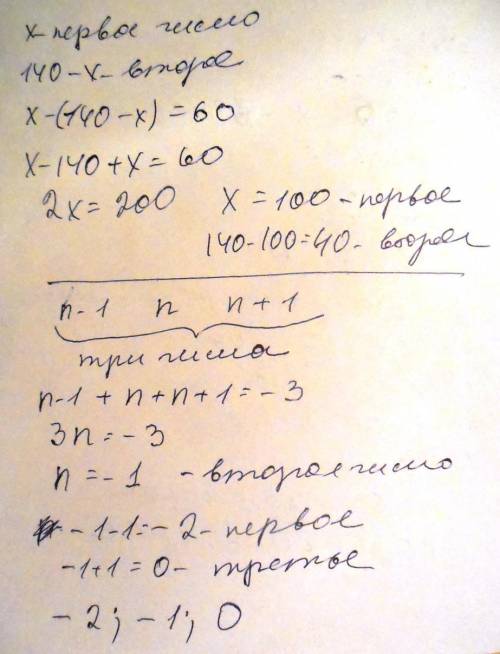 x - первое число
140 - x - второе
x - (140 - x) = 60
x - 140 + x = 60
2x = 200 x = 100 - первое
140 - 100 = 40 - второе
n - 1 n n + 1
три числа
n - 1 + n + n + 1 = - 3
3n = - 3
n = - 1 - второе число
- 1 - 1 = - 2 - первое
- 1 + 1 = 0 - третье
- 2; - 1; 0